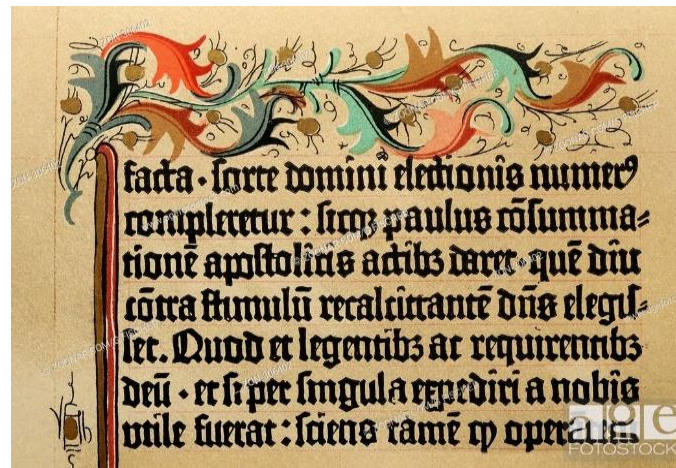 facta · sorte domini electionis numerꝰ
compleretur : sicqꝫ paulus cōsumma⸗
tionē apostolicis actibꝫ daret · quē diu
cōtra stimulū recalcitrantē dn̄s elegis⸗
set. Quod et legentibꝫ ac requirentibꝫ
deū · et si per singula expediri a nobis
utile fuerat : sciens tamē ꝙ
age
FOTOSTOCK